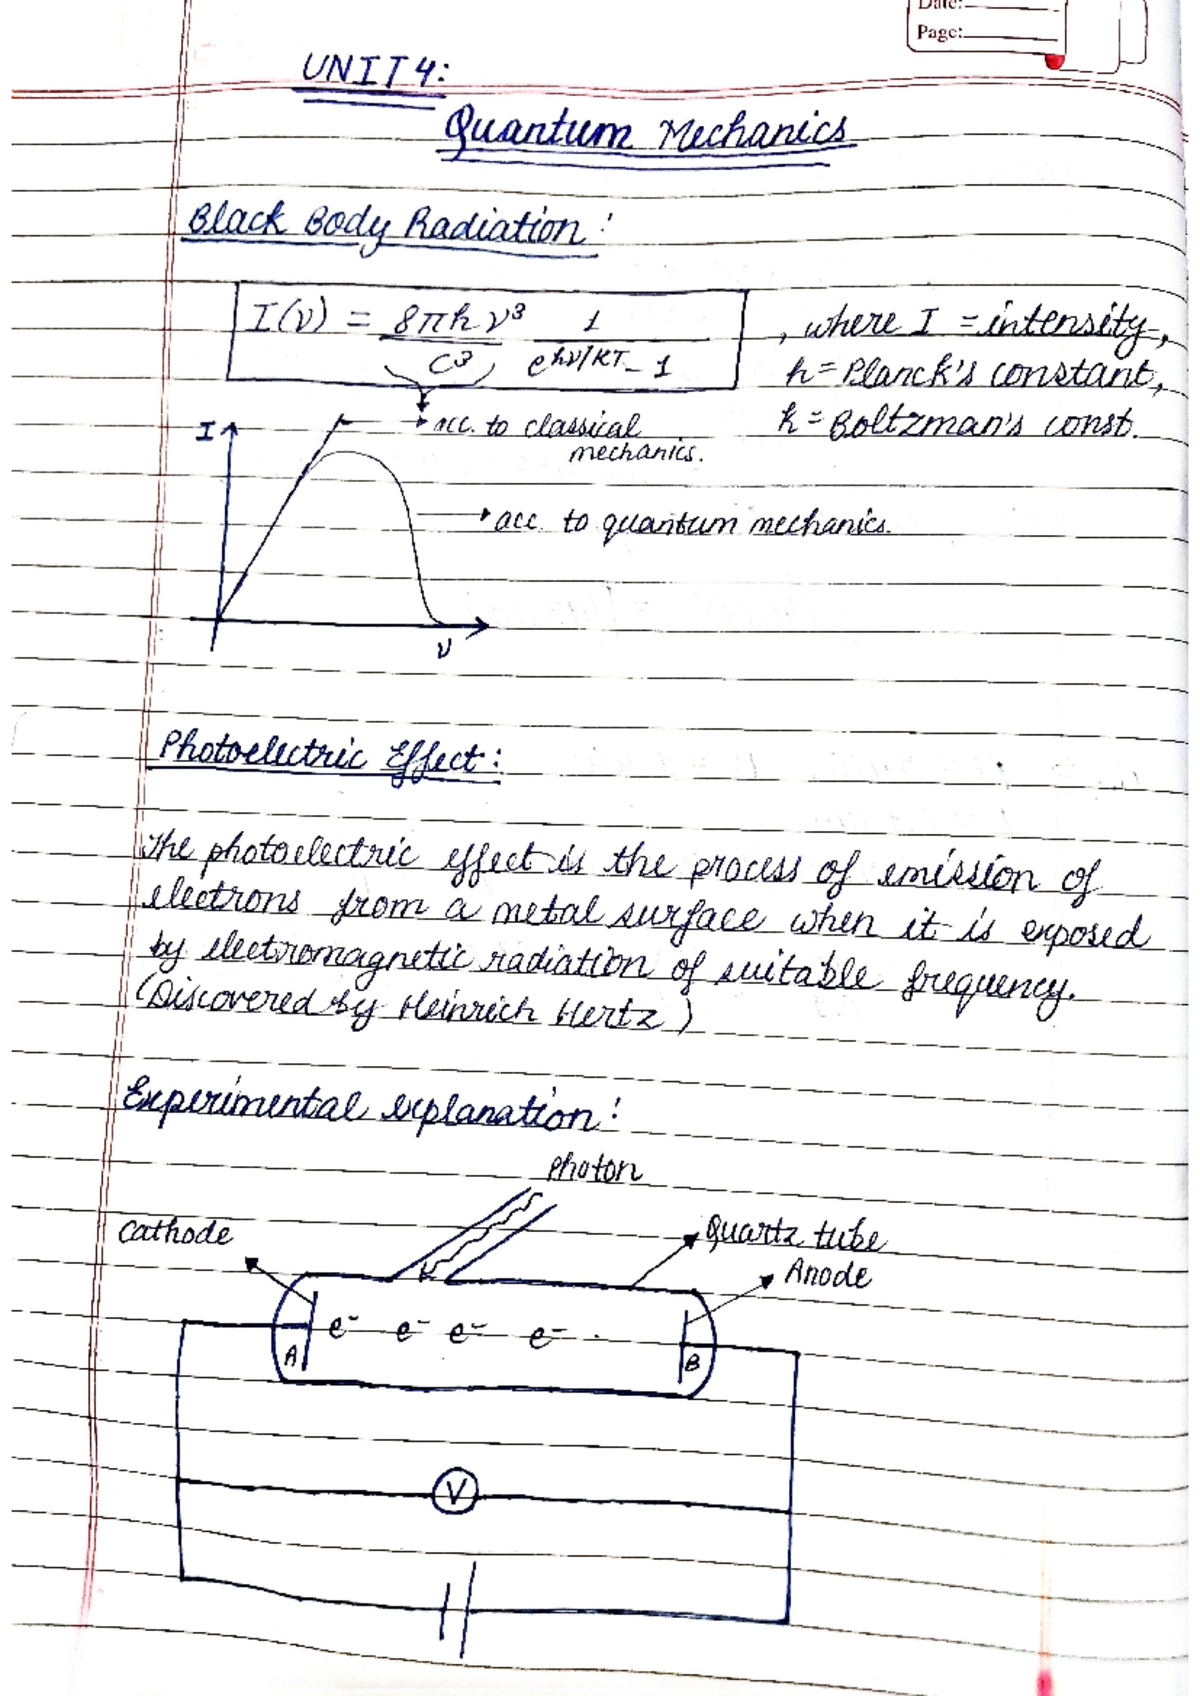 Date:
Page:
UNIT 4:
Quantum Mechanics
Black Body Radiation:
I(ν) = 8πhν³/c³ 1/e^hν/kT - 1 , where I = intensity,
h = Planck's constant,
k = Boltzman's const.
I
acc. to classical
mechanics.
acc. to quantum mechanics.
ν
Photoelectric Effect:
The photoelectric effect is the process of emission of
electrons from a metal surface when it is exposed
by electromagnetic radiation of suitable frequency.
(Discovered by Heinrich Hertz)
Experimental explanation:
Photon
Cathode
Quartz tube
Anode
e⁻ e⁻ e⁻ e⁻
A
B
V